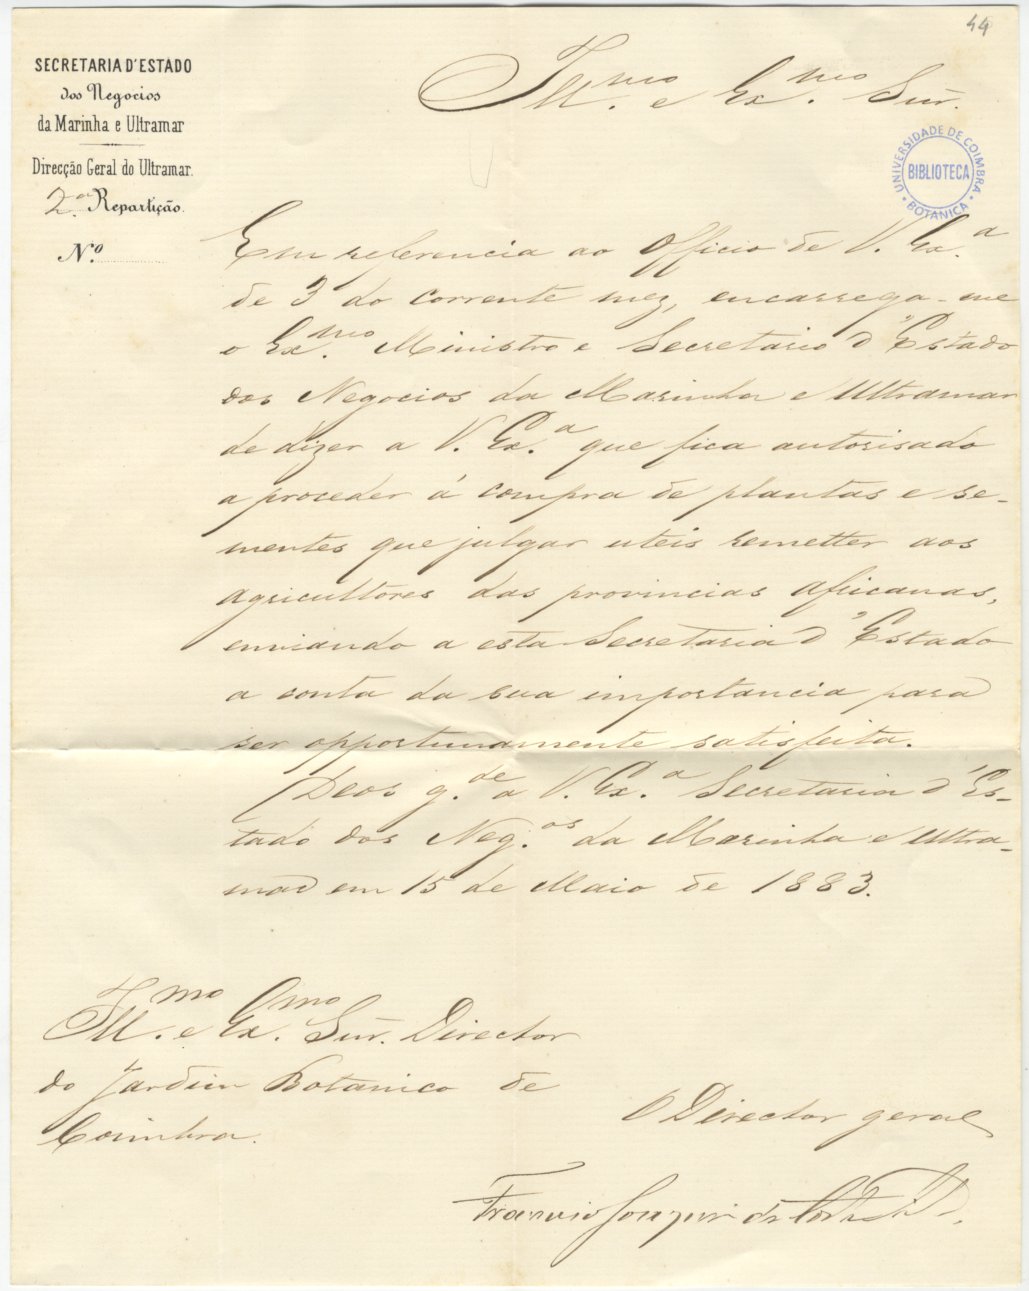 44
SECRETARIA D'ESTADO
dos Negocios
da Marinha e Ultramar
Direcção Geral do Ultramar.
2.ª Repartição.
N.º
Ill.mo e Ex.mo Snr.
UNIVERSIDADE DE COIMBRA
BIBLIOTECA
BOTANICA
Em referencia ao Officio de V. Ex.a
de 3 do corrente mez, encarrega-me
o Ex.mo Ministro e Secretario d'Estado
dos Negocios da Marinha e Ultramar
de dizer a V. Ex.a que fica autorisado
a proceder á compra de plantas e se-
mentes que julgar uteis remetter aos
agricultores das provincias africanas,
enviando a esta Secretaria d'Estado
a conta da sua importancia para
ser opportunamente satisfeita.
Deos g.de a V. Ex.a Secretaria d'Es-
tado dos Neg.os da Marinha e Ultra-
mar em 15 de Maio de 1883.
Ill.mo e Ex.mo Snr. Director
do Jardim Botanico de
Coimbra.
O Director geral
Francisco Joaquim da Costa e Silva